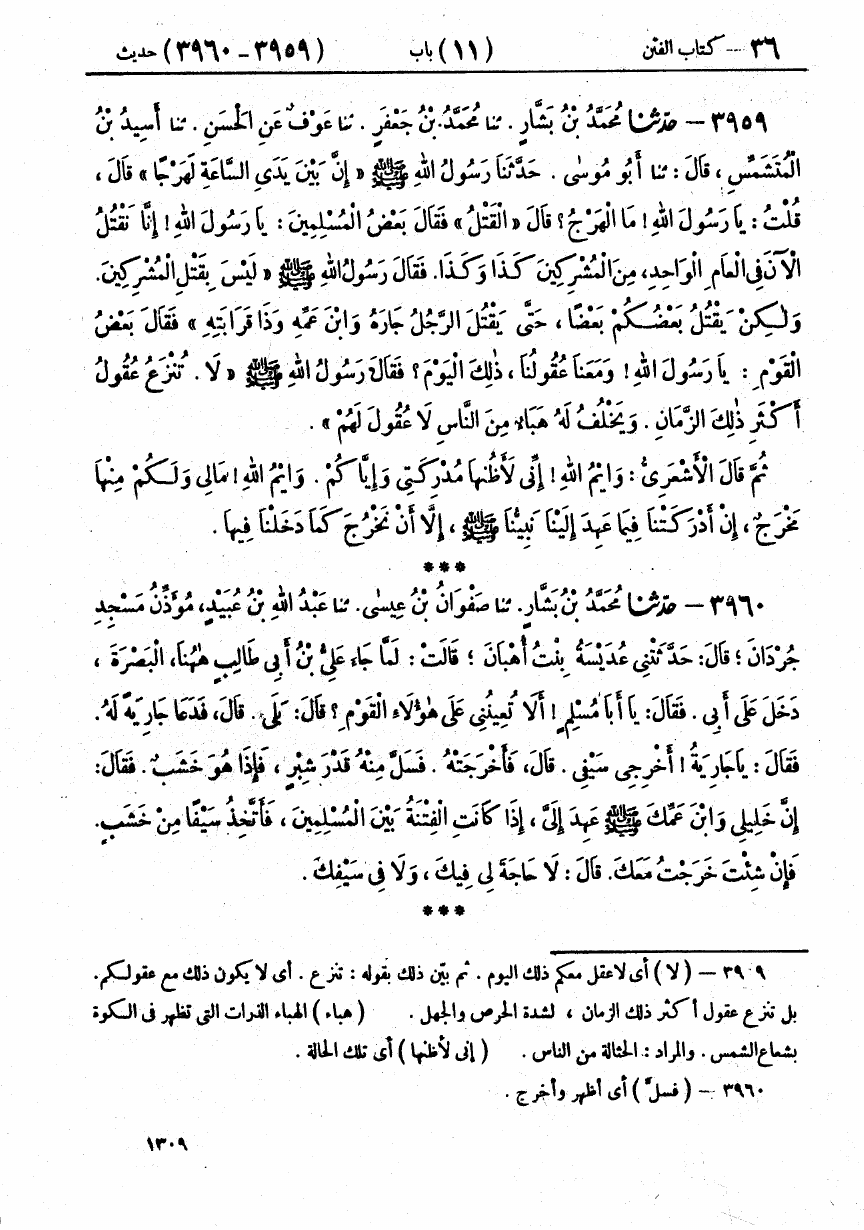 ٣٦ — كتاب الفتن (١١) باب (٣٩٥٩ - ٣٩٦٠) حديث
٣٩٥٩ — حَدَّثَنَا مُحَمَّدُ بْنُ بَشَّارٍ . ثنا مُحَمَّدُ بْنُ جَعْفَرٍ . ثنا عَوْفٌ عَنِ الْحَسَنِ . ثنا أَسِيدُ بْنُ
الْمُتَشَمِّسِ ، قَالَ : ثنا أَبُو مُوسَى . حَدَّثَنَا رَسُولُ اللهِ ﷺ « إِنَّ بَيْنَ يَدَىِ السَّاعَةِ لَهَرْجًا » قَالَ ،
قُلْتُ : يَا رَسُولَ اللهِ ! مَا الْهَرْجُ ؟ قَالَ « الْقَتْلُ » فَقَالَ بَعْضُ الْمُسْلِمِينَ : يَا رَسُولَ اللهِ ! إِنَّا نَقْتُلُ
الْآنَ فِى الْعَامِ الْوَاحِدِ ، مِنَ الْمُشْرِكِينَ كَذَا وَكَذَا . فَقَالَ رَسُولُ اللهِ ﷺ « لَيْسَ بِقَتْلِ الْمُشْرِكِينَ .
وَلٰكِنْ يَقْتُلُ بَعْضُكُمْ بَعْضًا ، حَتَّى يَقْتُلَ الرَّجُلُ جَارَهُ وَابْنَ عَمِّهِ وَذَا قَرَابَتِهِ » فَقَالَ بَعْضُ
الْقَوْمِ : يَا رَسُولَ اللهِ ! وَمَعَنَا عُقُولُنَا ، ذٰلِكَ الْيَوْمَ ؟ فَقَالَ رَسُولُ اللهِ ﷺ « لَا . تُنْزَعُ عُقُولُ
أَكْثَرِ ذٰلِكَ الزَّمَانِ . وَيَخْلُفُ لَهُ هَبَاءٌ مِنَ النَّاسِ لَا عُقُولَ لَهُمْ » .
ثُمَّ قَالَ الْأَشْعَرِىُّ : وَايْمُ اللهِ ! إِنِّى لَأَظُنُّهَا مُدْرِكَتِى وَإِيَّاكُمْ . وَايْمُ اللهِ ! مَالِى وَلَكُمْ مِنْهَا
مَخْرَجٌ ، إِنْ أَدْرَكَتْنَا فِيمَا عَهِدَ إِلَيْنَا نَبِيُّنَا ﷺ ، إِلَّا أَنْ نَخْرُجَ كَمَا دَخَلْنَا فِيهَا .
***
٣٩٦٠ — حَدَّثَنَا مُحَمَّدُ بْنُ بَشَّارٍ . ثنا صَفْوَانُ بْنُ عِيسَى . ثنا عَبْدُ اللهِ بْنُ عُبَيْدٍ ، مُؤَذِّنُ مَسْجِدِ
جُرْدَانَ ؛ قَالَ : حَدَّثَتْنِى عُدَيْسَةُ بِنْتُ أُهْبَانَ ؛ قَالَتْ : لَمَّا جَاءَ عَلِىُّ بْنُ أَبِى طَالِبٍ هٰهُنَا ، الْبَصْرَةَ ،
دَخَلَ عَلَى أَبِى . فَقَالَ : يَا أَبَا مُسْلِمٍ ! أَلَا تُعِينُنِى عَلَى هٰؤُلَاءِ الْقَوْمِ ؟ قَالَ : بَلَى . قَالَ ، فَدَعَا جَارِيَةً لَهُ .
فَقَالَ : يَا جَارِيَةُ ! أَخْرِجِى سَيْفِى . قَالَ ، فَأَخْرَجَتْهُ . فَسَلَّ مِنْهُ قَدْرَ شِبْرٍ ، فَإِذَا هُوَ خَشَبٌ . فَقَالَ :
إِنَّ خَلِيلِى وَابْنَ عَمِّكَ ﷺ عَهِدَ إِلَىَّ ، إِذَا كَانَتِ الْفِتْنَةُ بَيْنَ الْمُسْلِمِينَ ، فَأَتَّخِذُ سَيْفًا مِنْ خَشَبٍ .
فَإِنْ شِئْتَ خَرَجْتُ مَعَكَ . قَالَ : لَا حَاجَةَ لِى فِيكَ ، وَلَا فِى سَيْفِكَ .
***
٣٩٠٩ — ( لا ) أى لاعقل معكم ذلك اليوم . ثم بيّن ذلك بقوله : تنزع . أى لا يكون ذلك مع عقولكم .
بل تنزع عقول أكثر ذلك الزمان ، لشدة الحرص والجهل . ( هباء ) الهباء الذرات التى تظهر فى الكوة
بشعاع الشمس . والمراد : الحثالة من الناس . ( إنى لأظنها ) أى تلك الحالة .
٣٩٦٠ — ( فسلّ ) أى أظهر وأخرج .
١٣٠٩